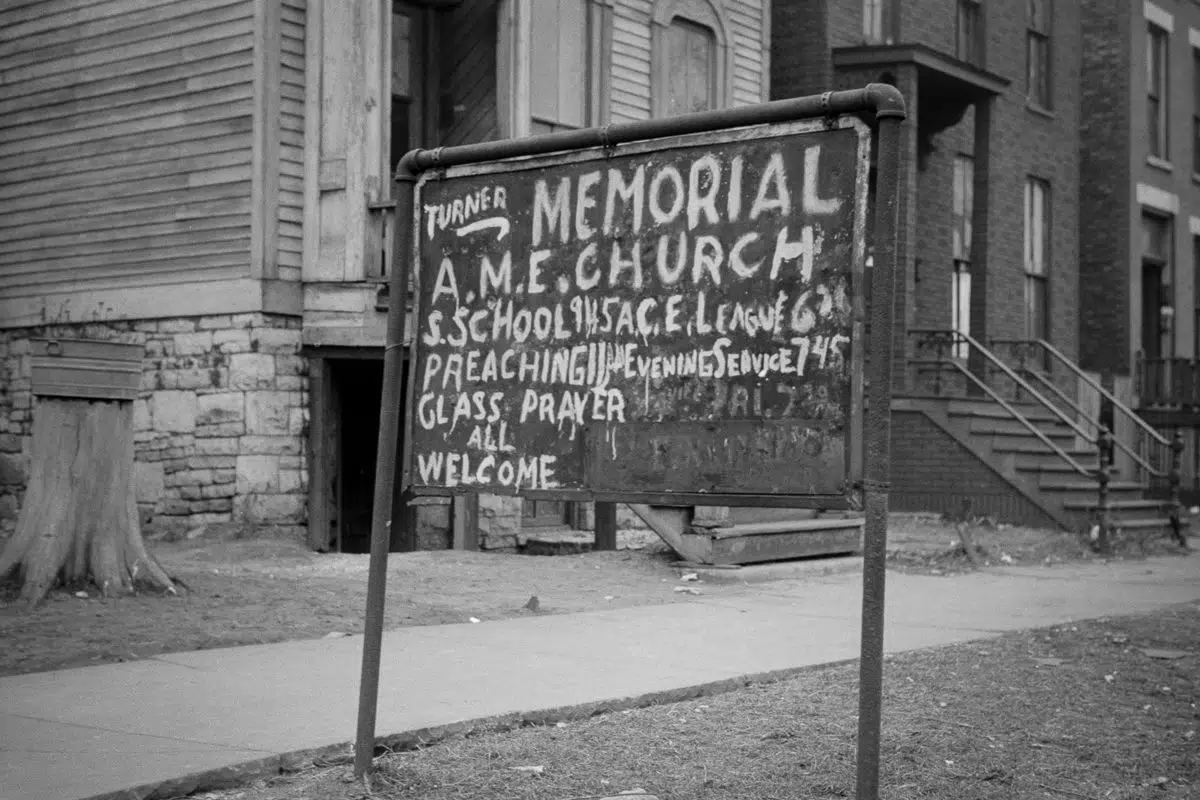 TURNER MEMORIAL
A.M.E. CHURCH
S.SCHOOL 945 A.C.E. LEAGUE 630
PREACHING 11 EVENING SERVICE 745
GLASS PRAYER
ALL
WELCOME